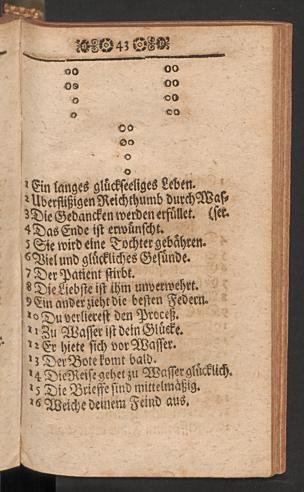 43
1 Ein langes glückseeliges Leben.
2 Uberflißigen Reichthumb durch Was-
3 Die Gedancken werden erfüllet. (ser.
4 Das Ende ist erwünscht.
5 Sie wird eine Tochter gebähren.
6 Viel und glückliches Gesünde.
7 Der Patient stirbt.
8 Die Liebste ist ihm unverwehrt.
9 Ein ander zieht die besten Federn.
10 Du verlierest den Proceß.
11 Zu Wasser ist dein Glücke.
12 Er hiete sich vor Wasser.
13 Der Bote komt bald.
14 Die Reise gehet zu Wasser glücklich.
15 Die Brieffe sind mittelmäßig.
16 Weiche deinem Feind aus.